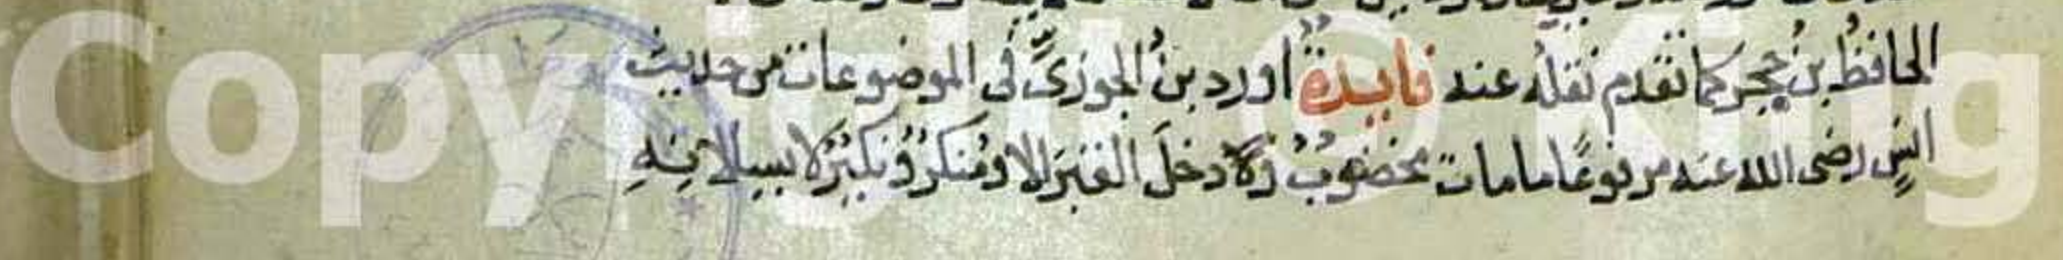 الحافظُ بنُ حجر كما تقدم نقلُه عنه فايدةٌ اورد بنُ الجوزيِّ في الموضوعات من حديث
انسٍ رضى الله عنه مرفوعًا ما مات مخضوبٌ ولا دخلَ القبرَ الا ومُنكرٌ ونكيرٌ لا يسيلانِهِ
Copyright © King